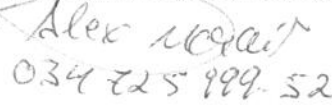 Alex
034 725 999 52